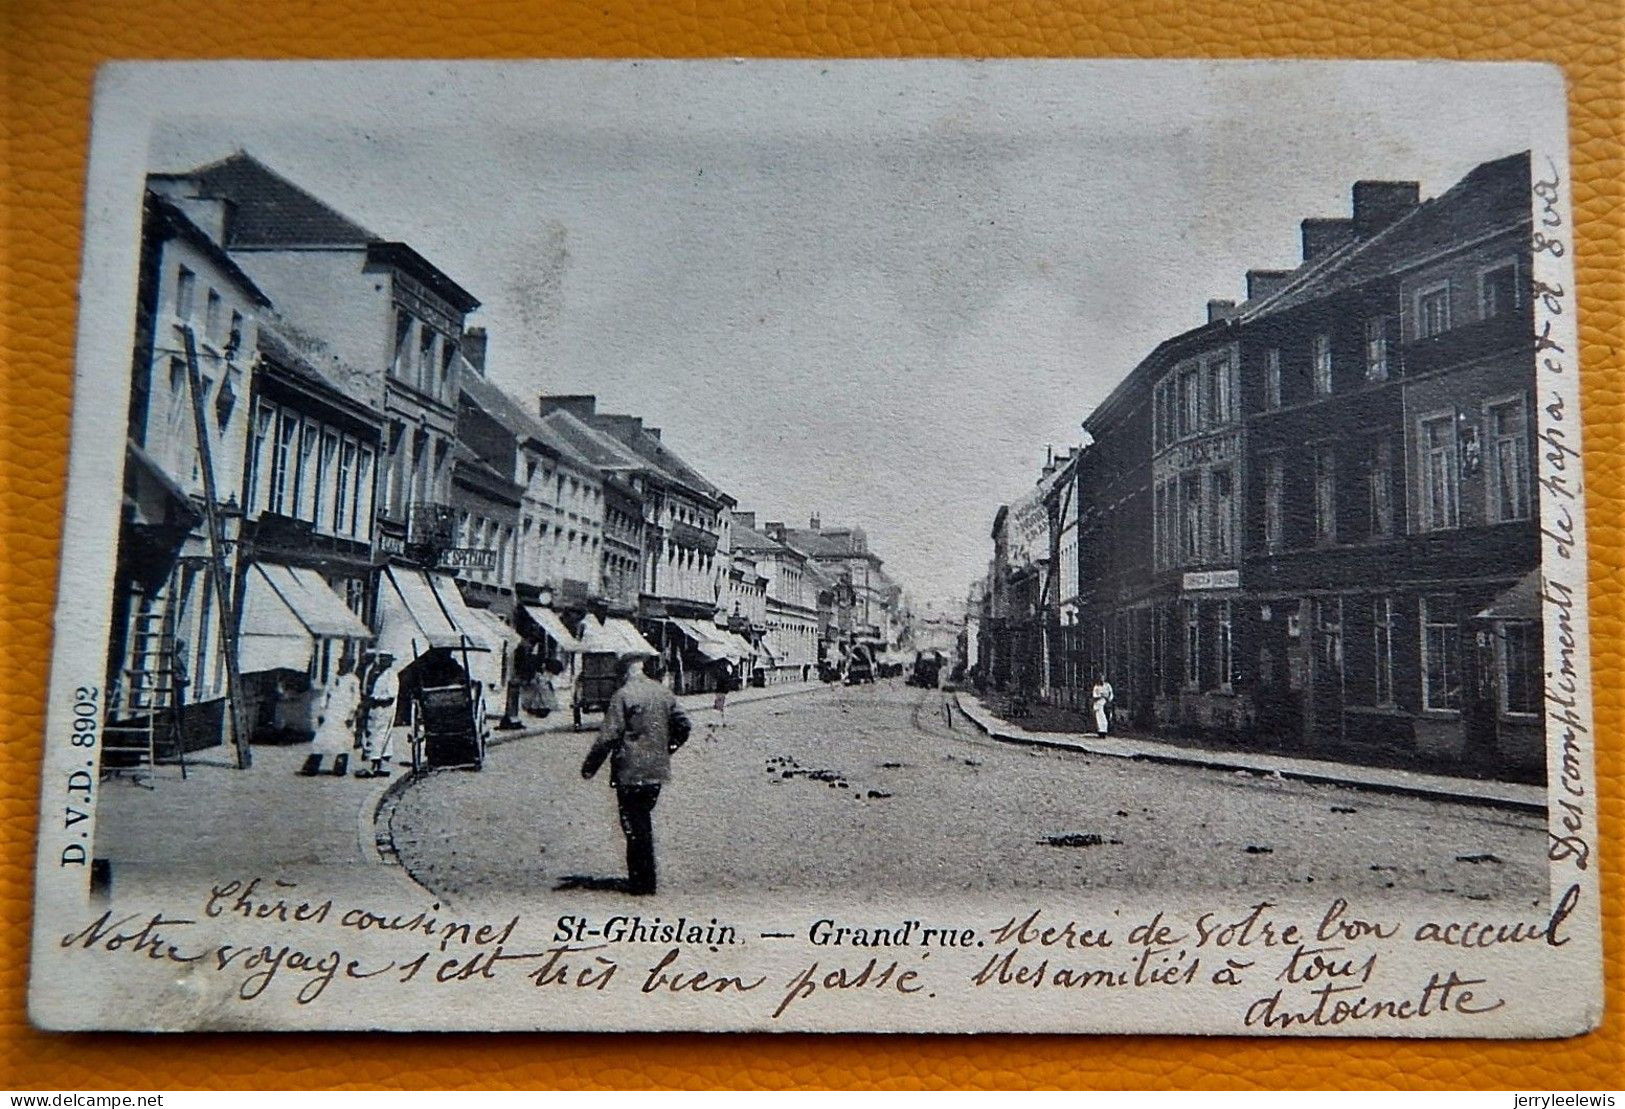 D.V.D. 8902
SPECIALE
St-Ghislain. — Grand'rue.
Chères cousines
Notre voyage s'est très bien passé.
Merci de votre bon acceuil
Mes amitiés à tous
Antoinette
Des compliments de papa et d'Eva
jerryleelewis